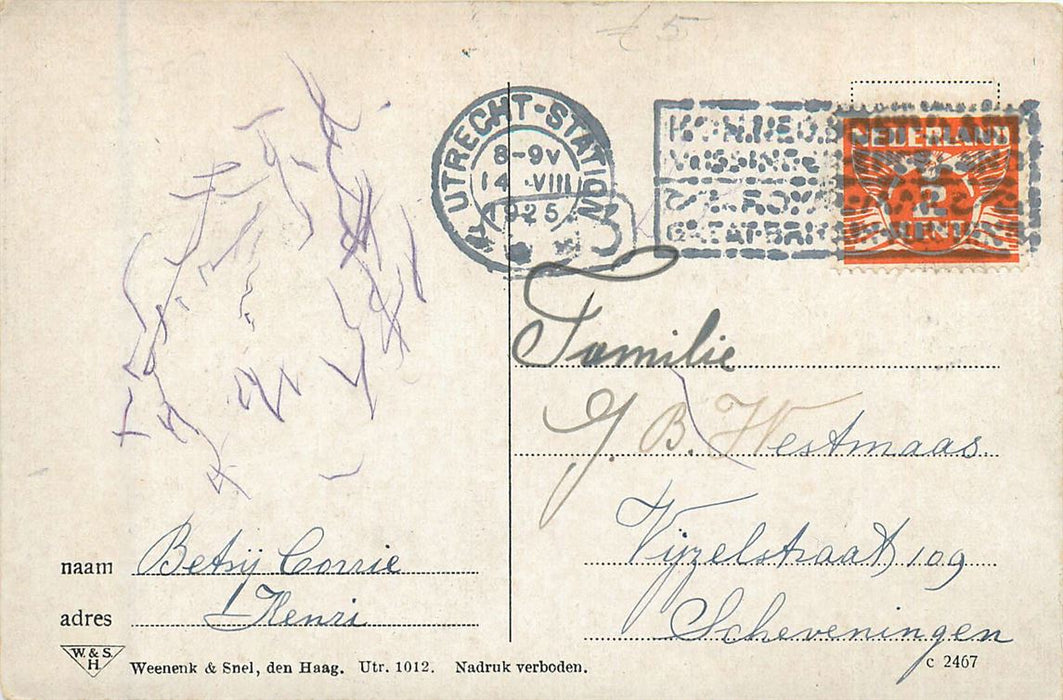 £5
UTRECHT-STATION
8-9V
14 VIII
1925
3
NEDERLAND
2
Familie
J. B. Westmaas
Vijzelstraat 109
Scheveningen
naam Betsij Corrie
adres Henri
W. & S.
H
Weenenk & Snel, den Haag. Utr. 1012. Nadruk verboden.
c 2467